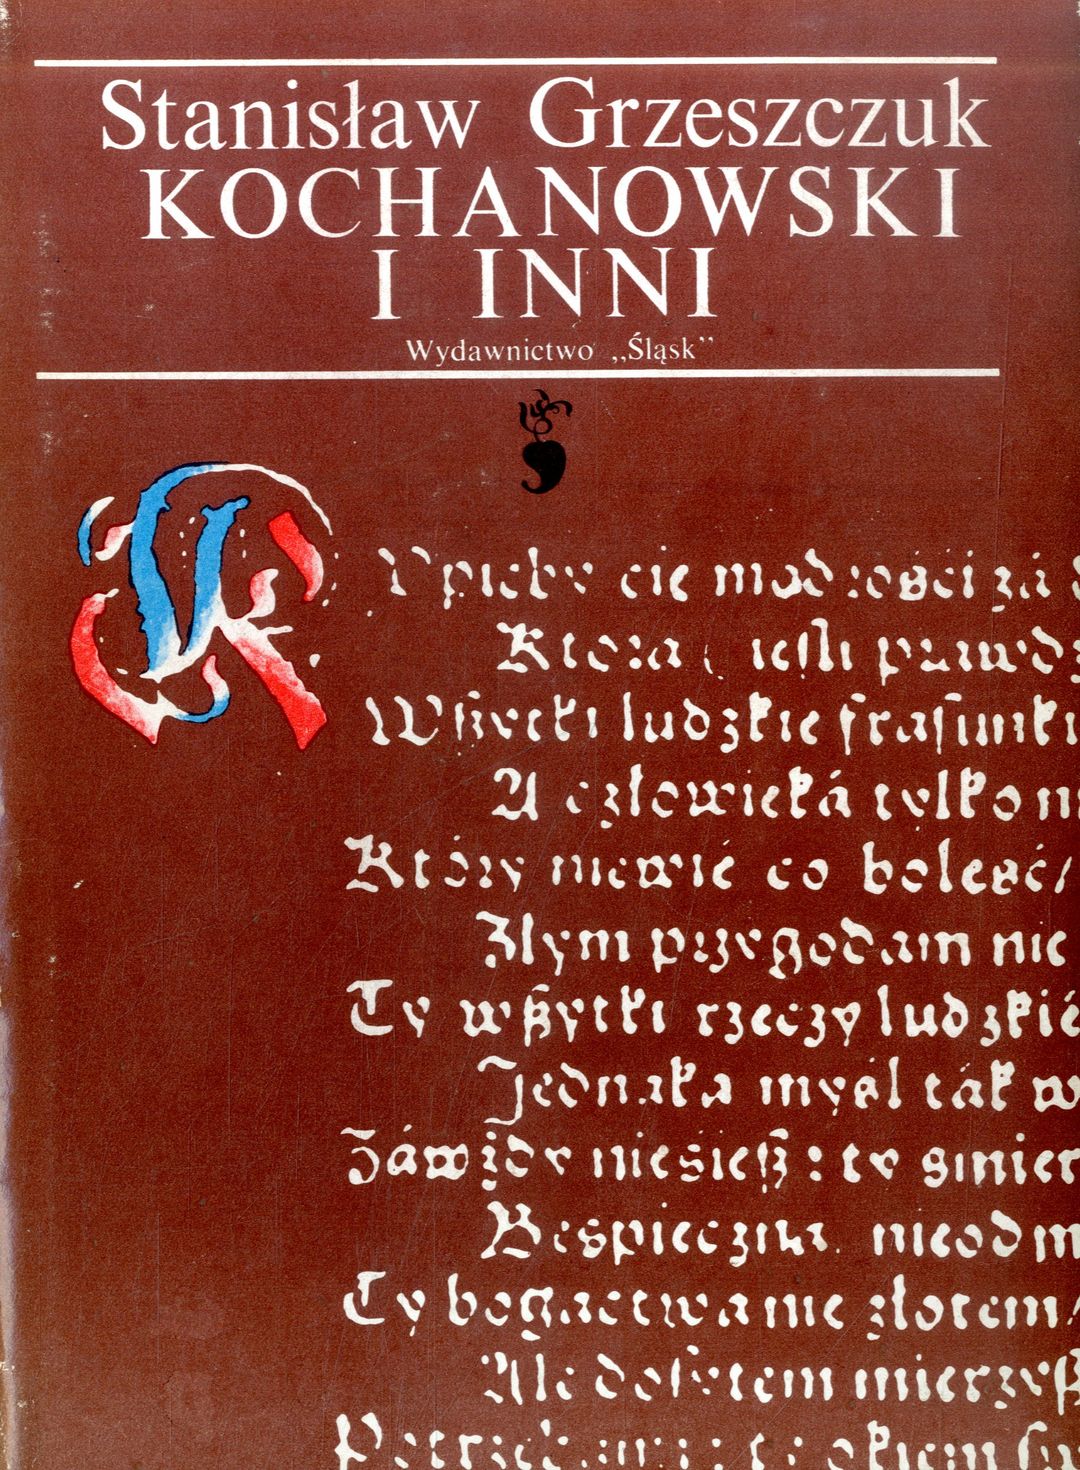 Stanisław Grzeszczuk
KOCHANOWSKI
I INNI
Wydawnictwo „Śląsk”
K Vpićby cię mądrości zá
Która, ieſli prawdz
Wßytki ludzkie fraſunki
A człowieká tylko ni
Który niewié co boleść/
Złym przygodam nie
Ty wßytki rzeczy ludzkié
Jednaką myśl ták w
Záwżdy nieśieß: ty śmier
Bespieczna, nieodm
Ty bogactwa nie złotem/
Ale doſytem mierzyß
Potrzebami: ty okiem ſw